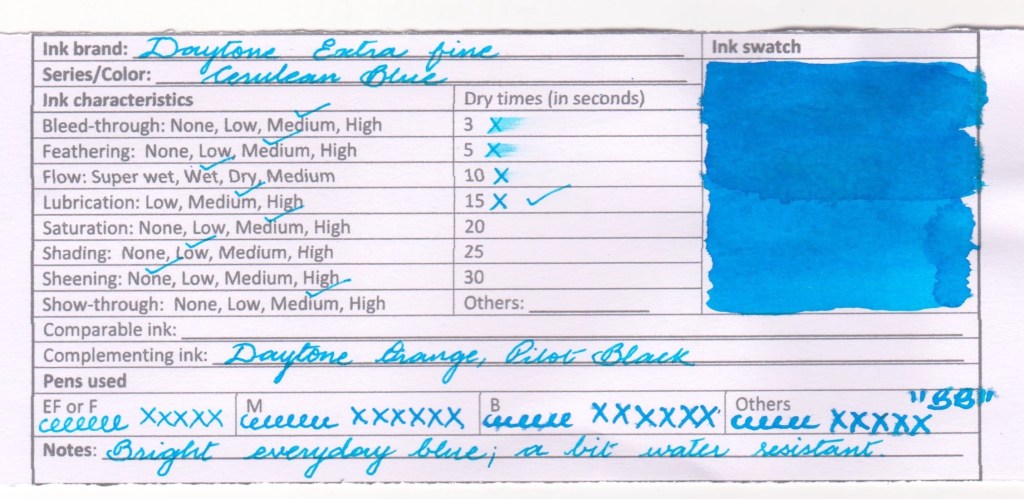 Ink brand: Daytone Extra fine
Ink swatch
Series/Color: Cerulean Blue
Ink characteristics
Dry times (in seconds)
Bleed-through: None, Low, Medium, High
3 X
Feathering: None, Low, Medium, High
5 X
Flow: Super wet, Wet, Dry, Medium
10 X
Lubrication: Low, Medium, High
15 X ✓
Saturation: None, Low, Medium, High
20
Shading: None, Low, Medium, High
25
Sheening: None, Low, Medium, High
30
Show-through: None, Low, Medium, High
Others:
Comparable ink:
Complementing ink: Daytone Orange, Pilot Black
Pens used
EF or F
M
B
Others "BB"
eeeeeee XXXXX
eeeeeee XXXXXX
eeeeeee XXXXXX
eeeeee XXXXX
Notes: Bright everyday blue; a bit water resistant.